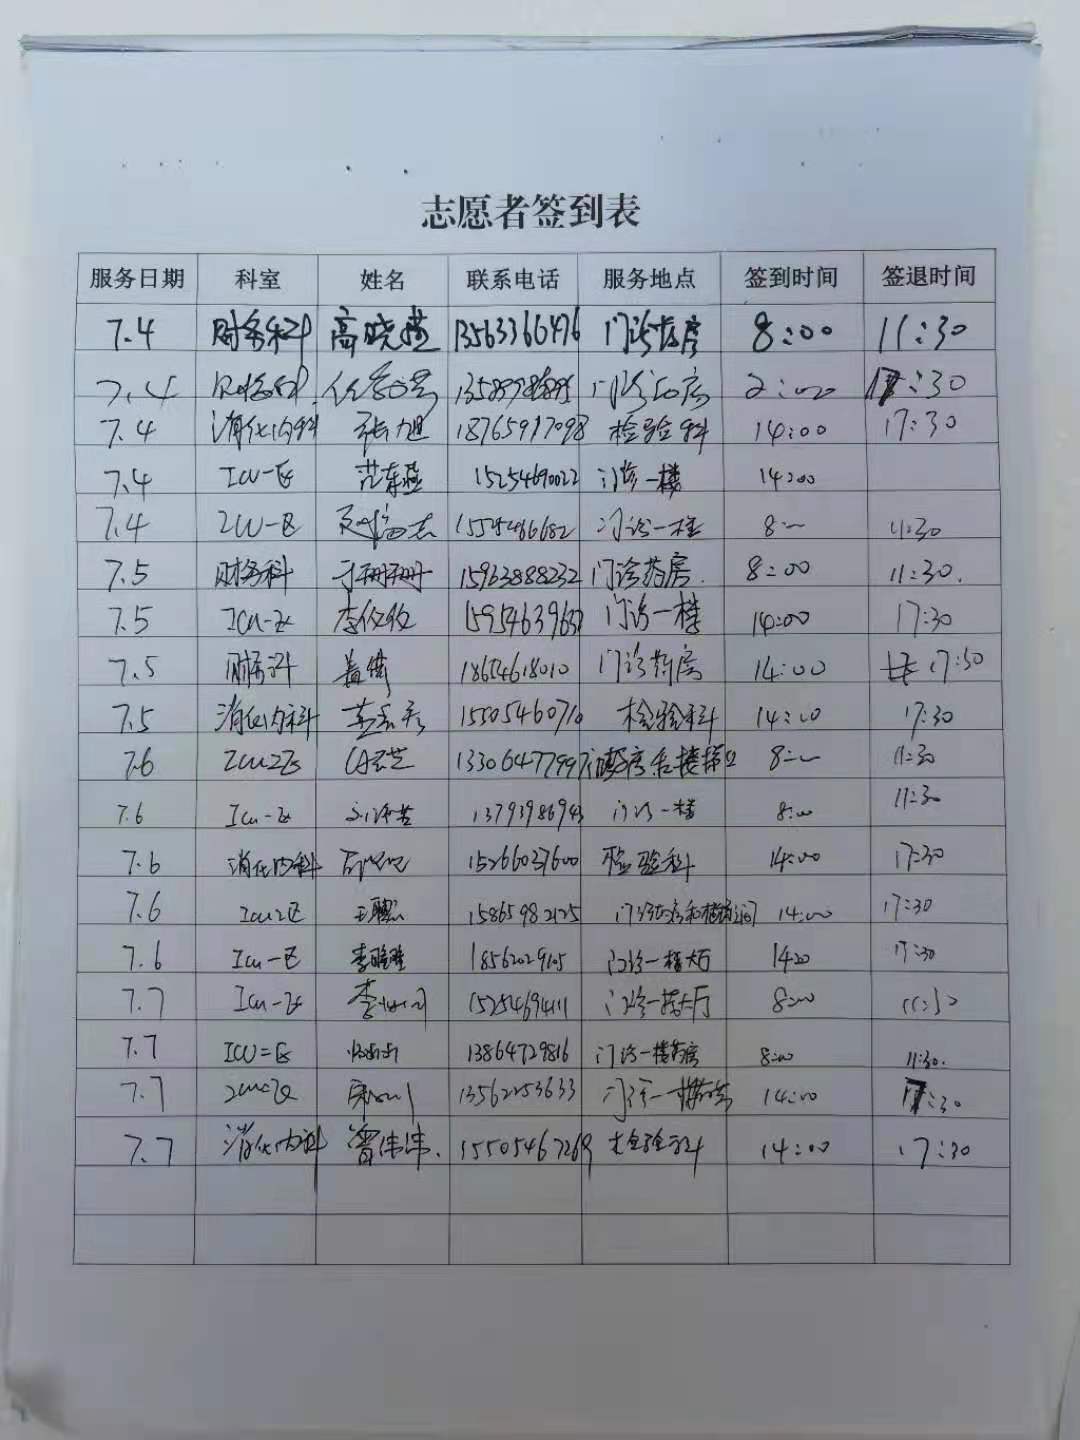 志愿者签到表
服务日期 科室 姓名 联系电话 服务地点 签到时间 签退时间
7.4 财务科 高晓燕 13563366476 门诊药房 8:00 11:30
7.4 财务科 门诊药房 2:00 17:30
7.4 消化内科 张旭 18765917098 检验科 14:00 17:30
7.4 ICU一区 范东燕 15254690022 门诊一楼 14:00
7.4 ICU一区 门诊一楼 8:00 11:30
7.5 财务科 于珊珊 15963888232 门诊药房. 8:00 11:30.
7.5 ICU一区 门诊一楼 14:00 17:30
7.5 财务科 盖倩 18654618010 门诊药房 14:00 17:30
7.5 消化内科 15505460710 检验科 14:00 17:30
7.6 ICU2区 13306477997 8:00 11:30
7.6 ICU一区 13793986943 门诊一楼 8:00 11:30
7.6 消化内科 15266037600 检验科 14:00 17:30
7.6 ICU2区 王聪 15865982125 14:00 17:30
7.6 ICU一区 18562029105 门诊一楼大厅 1420 17:30
7.7 ICU一区 15254694111 门诊一楼大厅 8:00 11:30
7.7 ICU二区 13864729816 门诊一楼药房 8:00 11:30.
7.7 ICU二区 13562253633 14:00 17:30
7.7 消化内科 曾伟伟. 15505467269 检验科 14:00 17:30